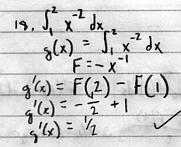 18. ∫₁² x⁻² dx
g(x) = ∫₁² x⁻² dx
F = -x⁻¹
g'(x) = F(2) - F(1)
g'(x) = -1/2 + 1
g'(x) = 1/2 ✓